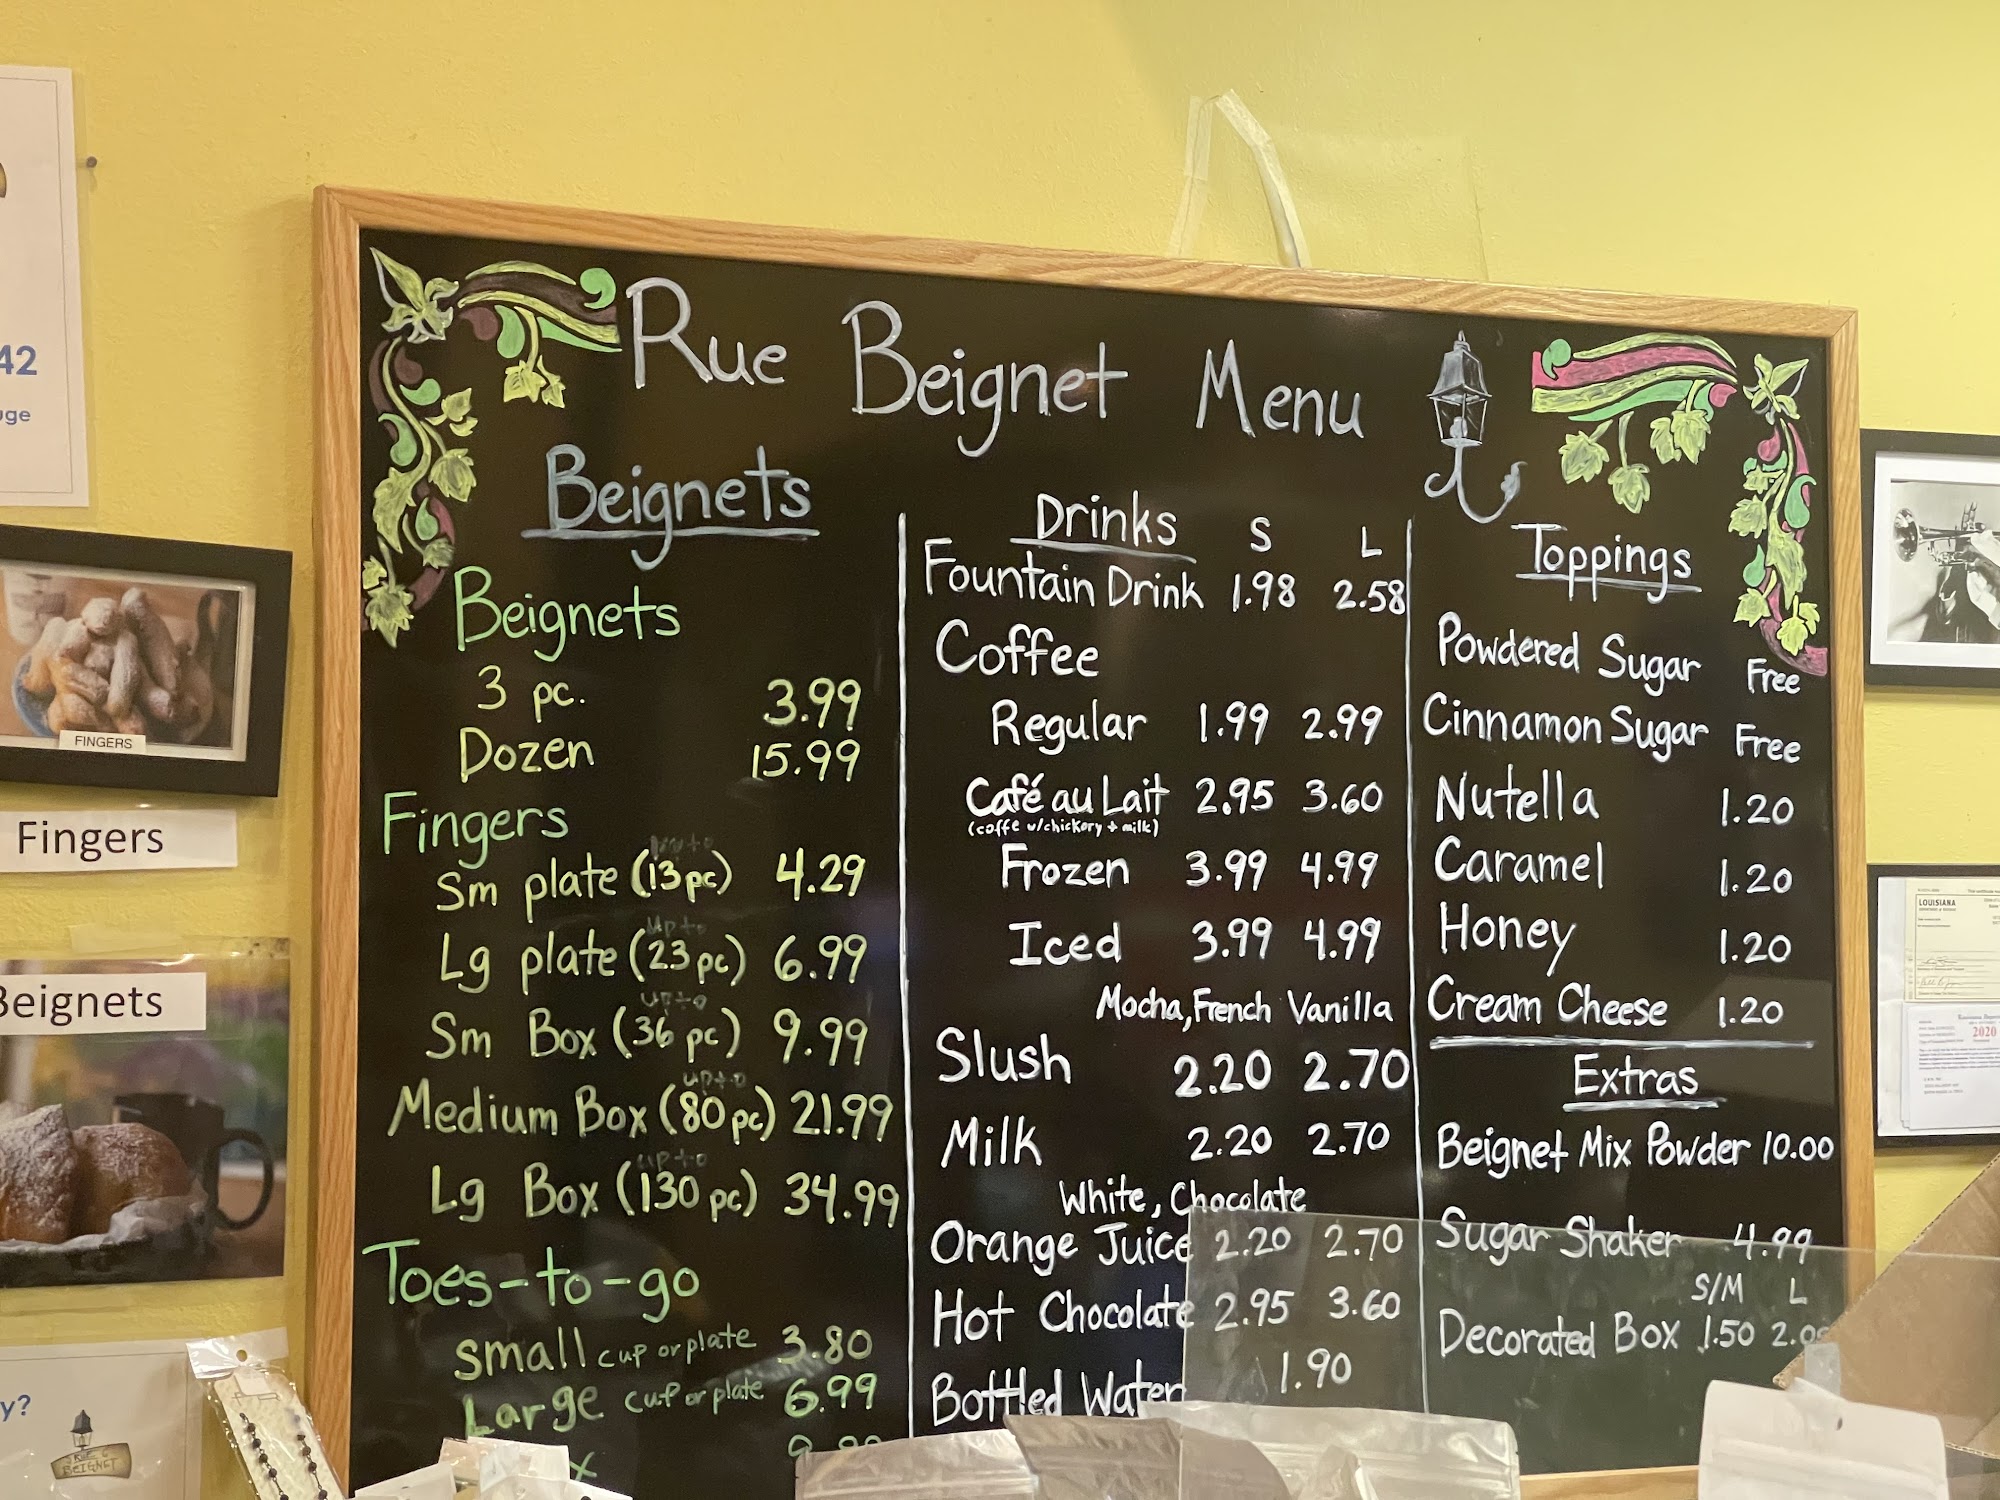 Rue Beignet Menu
Beignets
Beignets
3 pc. 3.99
Dozen 15.99
Fingers
up to
Sm plate (13 pc) 4.29
up to
Lg plate (23 pc) 6.99
up to
Sm Box (36 pc) 9.99
up to
Medium Box (80 pc) 21.99
up to
Lg Box (130 pc) 34.99
Toes-to-go
Small cup or plate 3.80
Large cup or plate 6.99
Drinks S L
Fountain Drink 1.98 2.58
Coffee
Regular 1.99 2.99
Café au Lait 2.95 3.60
(coffe w/chickory + milk)
Frozen 3.99 4.99
Iced 3.99 4.99
Mocha, French Vanilla
Slush 2.20 2.70
Milk 2.20 2.70
White, Chocolate
Orange Juice 2.20 2.70
Hot Chocolate 2.95 3.60
Bottled Water 1.90
Toppings
Powdered Sugar Free
Cinnamon Sugar Free
Nutella 1.20
Caramel 1.20
Honey 1.20
Cream Cheese 1.20
Extras
Beignet Mix Powder 10.00
Sugar Shaker 4.99
S/M L
Decorated Box 1.50 2.0
42
uge
FINGERS
Fingers
Beignets
y?
RUE
BEIGNET
LOUISIANA
2020